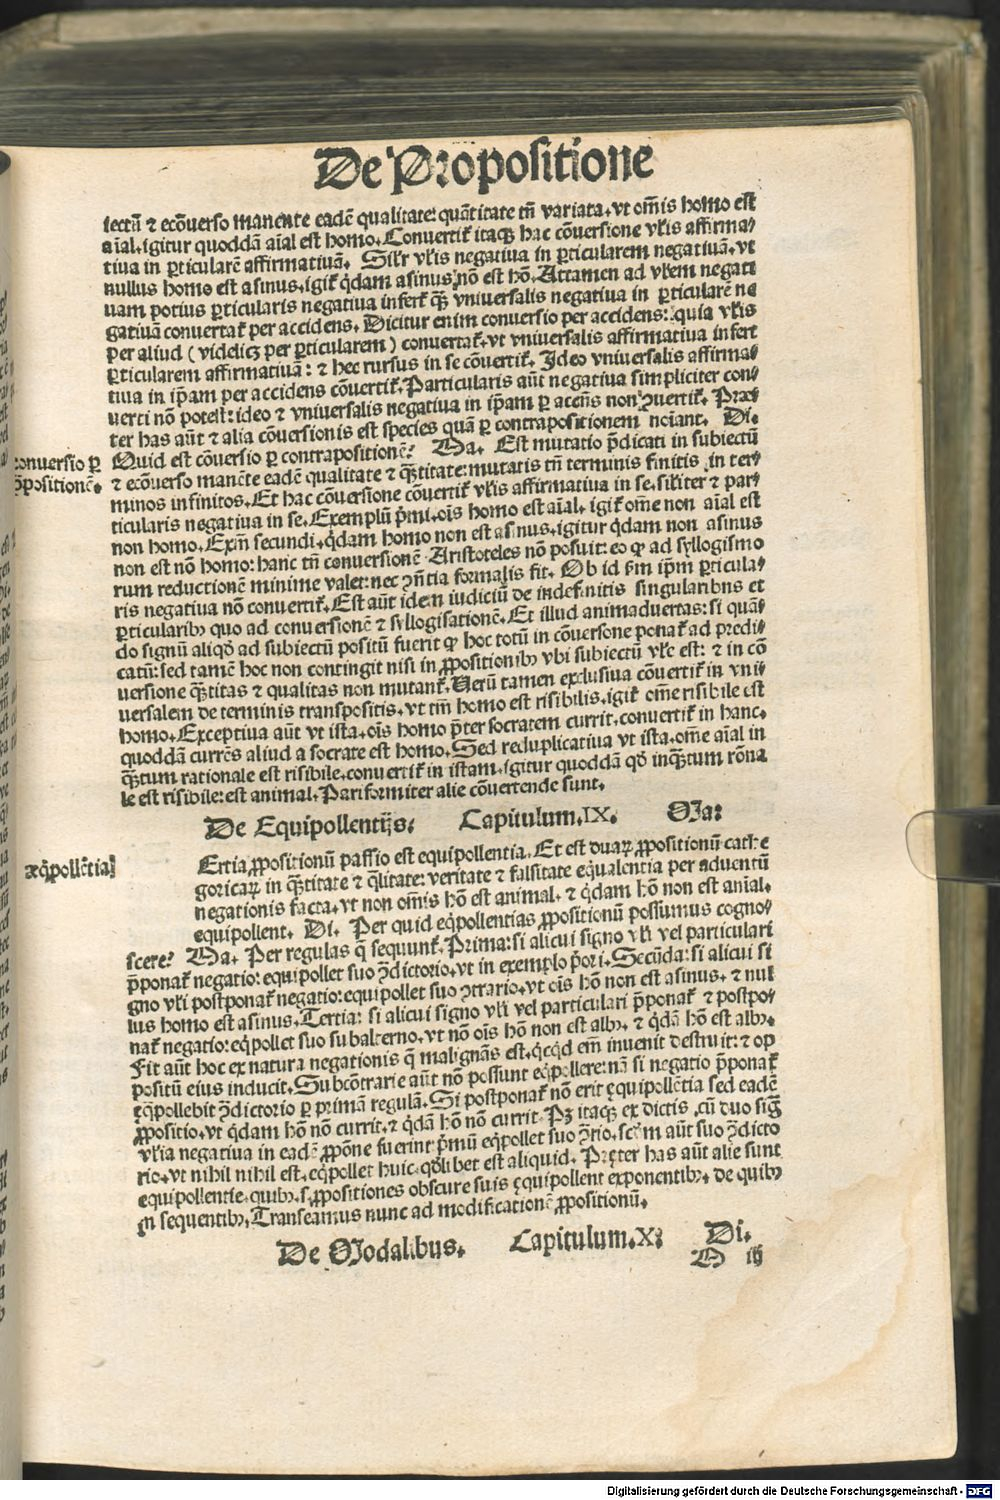 De Propositione
iectū & ecōuerso manente eadē qualitate: quātitate tn̄ variata. vt om̄is homo est
aīal. igitur quoddā aīal est homo. Conuertiť itaqꝫ hac cōuersione vľis affirma⸗
tiua in ꝑticularē affirmatiuā. Siľr vľis negatiua in ꝑticularem negatiuā. vt
nullus homo est asinus. igiť q̇dam asinus nō est hō. Attamen ad vľem negati
uam potius ꝑticularis negatiua inferť qꝫ vniuersalis negatiua in ꝑticularē ne
gatiuā conuertať per accidens. Dicitur enim conuersio per accidens: quia vľis
per aliud (videlicꝫ per ꝑticularem) conuertať. vt vniuersalis affirmatiua infert
ꝑticularem affirmatiuā: & hec rursus in se cōuertiť. Ideo vniuersalis affirma⸗
tiua in ip̄am per accidens cōuertiť. Particularis aūt negatiua simpliciter con⸗
uerti nō potest: ideo & vniuersalis negatiua in ip̄am ꝑ accn̄s non ꝯuertiť. Præ⸗
ter has aūt & alia cōuersionis est species quā ꝑ contrapositionem noīant. Di.
Conuersio ꝑ
ꝯpositionē.
Quid est cōuersio ꝑ contrapositionē? Ma. Est mutatio p̄dicati in subiectū
& ecōuerso manēte eadē qualitate & qꝫtitate: mutatis tn̄ terminis finitis in ter⸗
minos infinitos. Et hac cōuersione cōuertiť vľis affirmatiua in se. siľiter & par⸗
ticularis negatiua in se. Exemplū p̄mi. oīs homo est aīal. igiť om̄e non aīal est
non homo. Exm̄ secundi. q̇dam homo non est asinus. igitur q̇dam non asinus
non est nō homo: hanc tn̄ conuersionē Aristoteles nō posuit: eo ꝙ ad syllogismo
rum reductionē minime valet: nec ꝯn̄tia formalis fit. Ob id ẜm ip̄m ꝑticula⸗
ris negatiua nō conuertiť. Est aūt idem iudiciū de indefinitis singularibus et
ꝑticularibꝰ quo ad conuersionē & syllogisationē. Et illud animaduertas: si quā⸗
do signū aliqḋ ad subiectū positū fuerit ꝙ hoc totū in cōuersone ponať ad predi⸗
catū: sed tamē hoc non contingit nisi in ꝓpositionibꝰ vbi subiectū vľe est: & in cō
uersione qꝫtitas & qualitas non mutanť. Verū tamen exclusiua cōuertiť in vni⸗
uersalem de terminis transpositis. vt tm̄ homo est risibilis. igiť om̄e risibile est
homo. Exceptiua aūt vt ista. oīs homo p̄ter socratem currit. conuertiť in hanc.
quoddā currēs aliud a socrate est homo. Sed reduplicatiua vt ista. om̄e aīal in
qꝫtum rationale est risibile. conuertiť in istam. igitur quoddā qḋ inqꝫtum rōna
le est risibile: est animal. Pariformiter alie cōuertende sunt.
De Equipollentijs. Capitulum. IX. Ma:
Eq̇pollētia
Ertia ꝓpositionū passio est equipollentia. Et est duaꝝ ꝓpositionū cathe
goricaꝝ in qꝫtitate & q̄litate: veritate & falsitate eq̄ualentia per aduentū
negationis facta. vt non om̄is hō est animal. & q̇dam hō non est aīal.
equipollent. Di. Per quid eq̇pollentias ꝓpositionū possumus cogno⸗
scere? Ma. Per regulas q̄ sequunť. Prima: si alicui signo vľi vel particulari
p̄ponať negatio: equipollet suo ꝯdictorio. vt in exemplo p̄ori. Secūda: si alicui si
gno vľi postponať negatio: equipollet suo ꝯtrario. vt oīs hō non est asinus. & nul
lus homo est asinus. Tertia: si alicui signo vľi vel particulari p̄ponať & postpo⸗
nať negatio: eq̇pollet suo subalterno. vt nō oīs hō non est albꝰ. & q̇dā hō est albꝰ.
Fit aūt hoc ex natura negationis q̄ malignās est. q̇cq̇d em̄ inuenit destruit: & op
positū eius inducit. Subcōtrarie aūt nō possunt eq̇pollere: nā si negatio p̄ponať
eq̇pollebit ꝯdictorio ꝑ primā regulā. Si postponať nō erit equipollētia sed eadē
ꝓpositio. vt q̇dam hō nō currit. & q̇dā hō nō currit. Pꝫ itaqꝫ ex dictis. cū duo siḡ
vľia negatiua in eadē ꝓpōne fuerint p̄mū eq̇pollet suo ꝯrio. scďm aūt suo ꝯdicto
rio. vt nihil nihil est. eq̇pollet huic. qḋlibet est aliquid. Præter has aūt alie sunt
equipollentie. quibꝰ. s. ꝓpositiones obscure suis equipollent exponentibꝰ. de quibꝰ
in sequentibꝰ. Transeamus nunc ad modificationē ꝓpositionū.
De Modalibus. Capitulum. X. Di.
iij
Digitalisierung gefördert durch die Deutsche Forschungsgemeinschaft - DFG